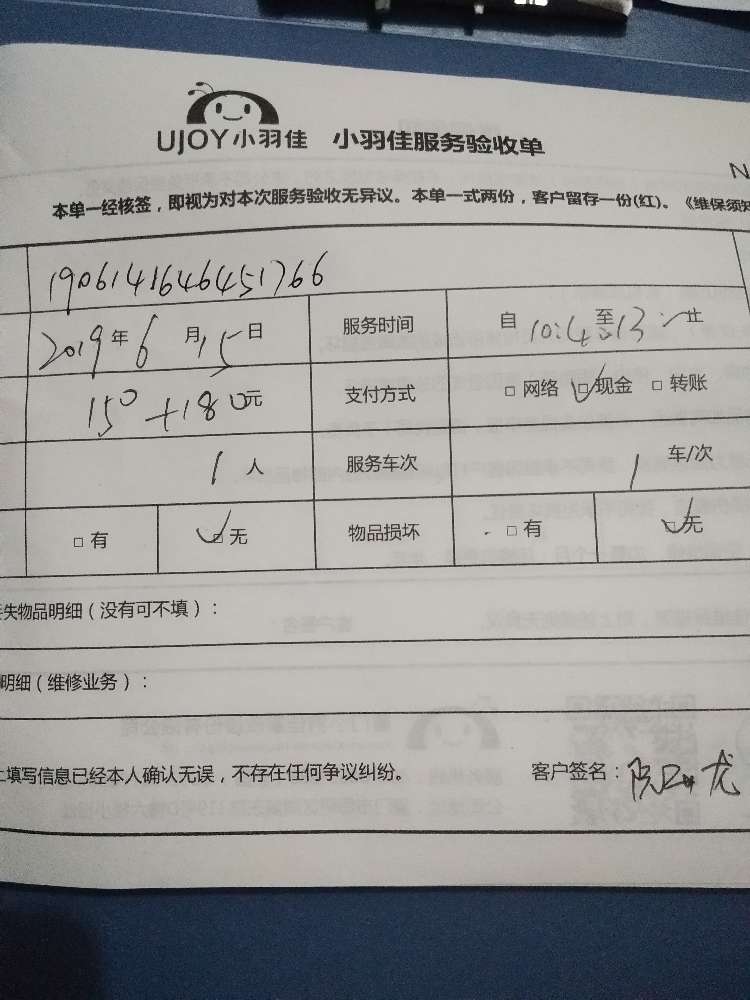 UJOY小羽佳 小羽佳服务验收单
N
本单一经核签，即视为对本次服务验收无异议。本单一式两份，客户留存一份(红)。《维保须知
1906141646451766
2019年6月15日 服务时间 自10:4 至13: 止
150+180元 支付方式 □网络 ☑现金 □转账
1人 服务车次 1车/次
□有 ☑无 物品损坏 □有 ☑无
失物品明细（没有可不填）：
明细（维修业务）：
上填写信息已经本人确认无误，不存在任何争议纠纷。 客户签名：